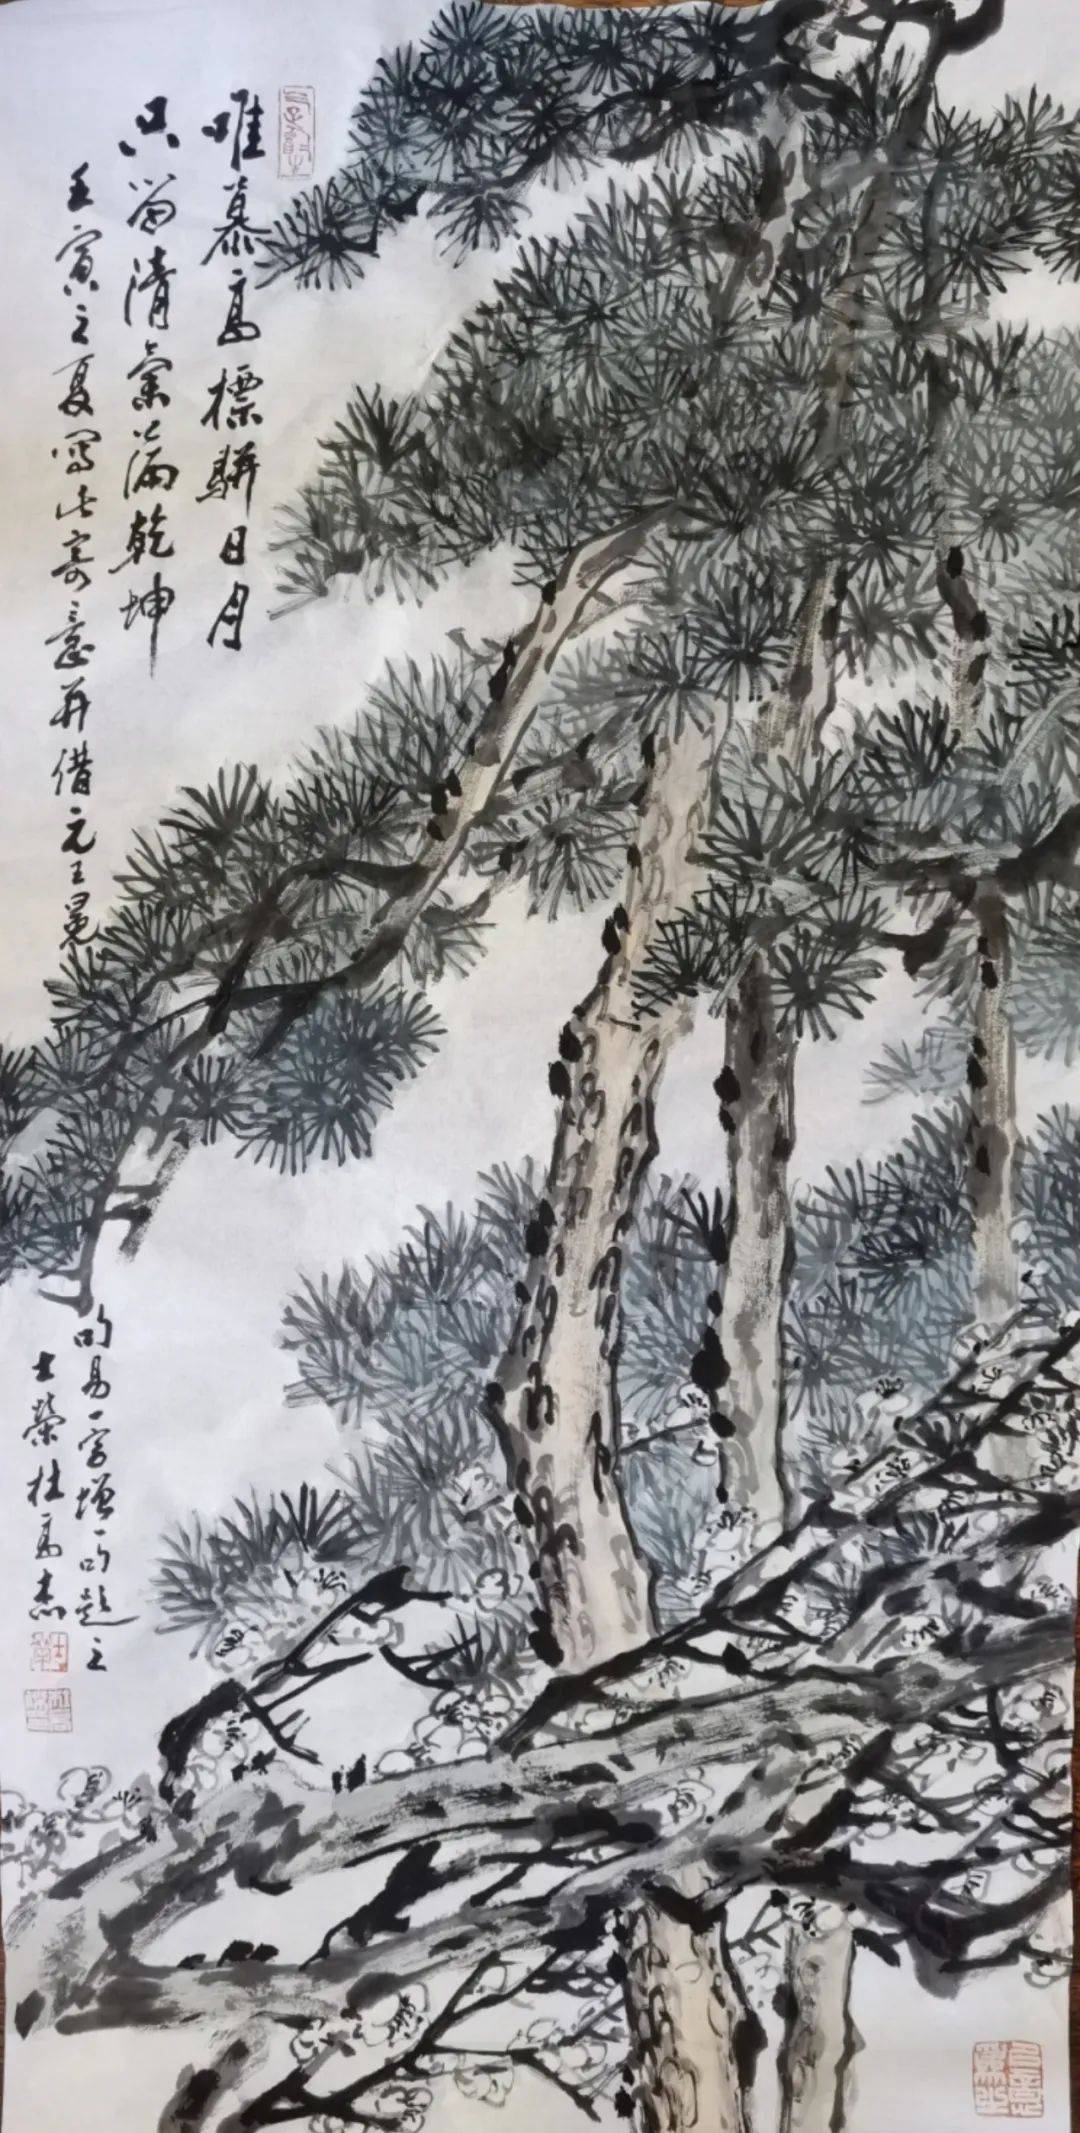 唯慕高標駢日月
只留清氣滿乾坤
壬寅之夏寫此寄意并借元王冕
句易一字增一句題之
士榮杜高杰